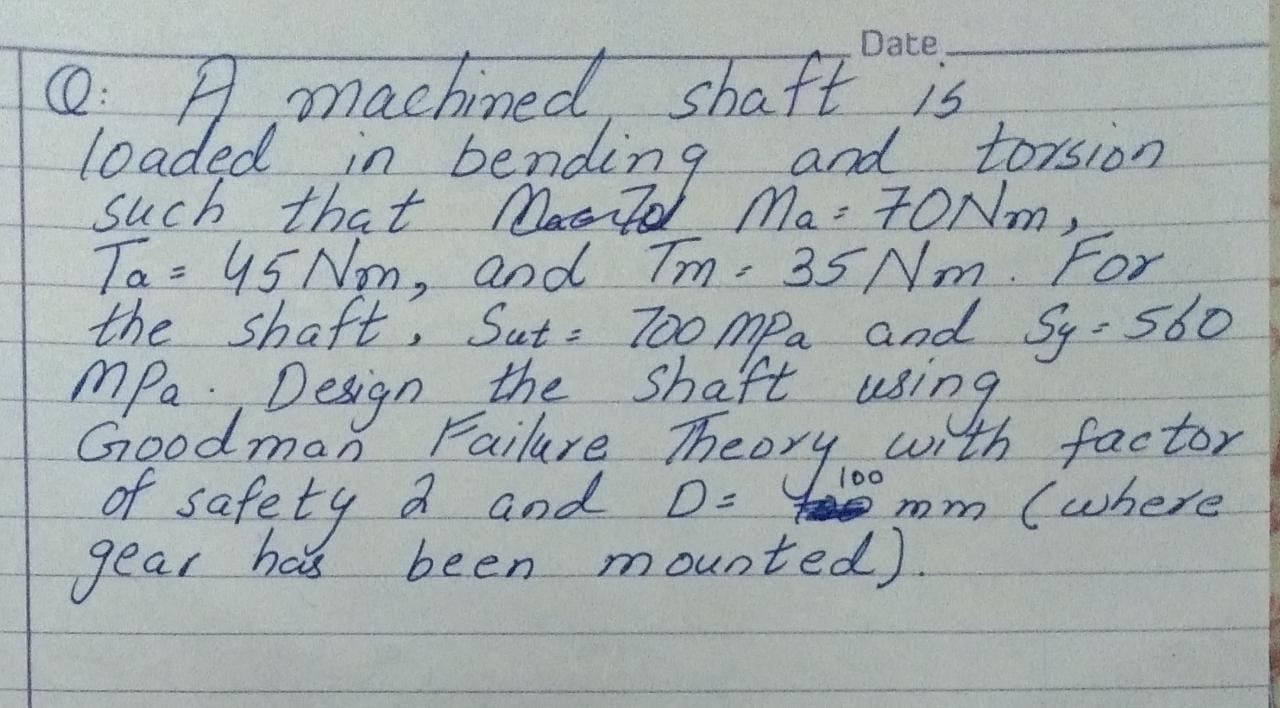 Date
Q: A machined shaft is
loaded in bending and torsion
such that Ma = 70Nm,
Ta = 45 Nm, and Tm = 35 Nm. For
the shaft, Sut = 700 MPa and Sy = 560
MPa. Design the shaft using
Goodman Failure Theory with factor
of safety 2 and D = 100 mm (where
gear has been mounted).